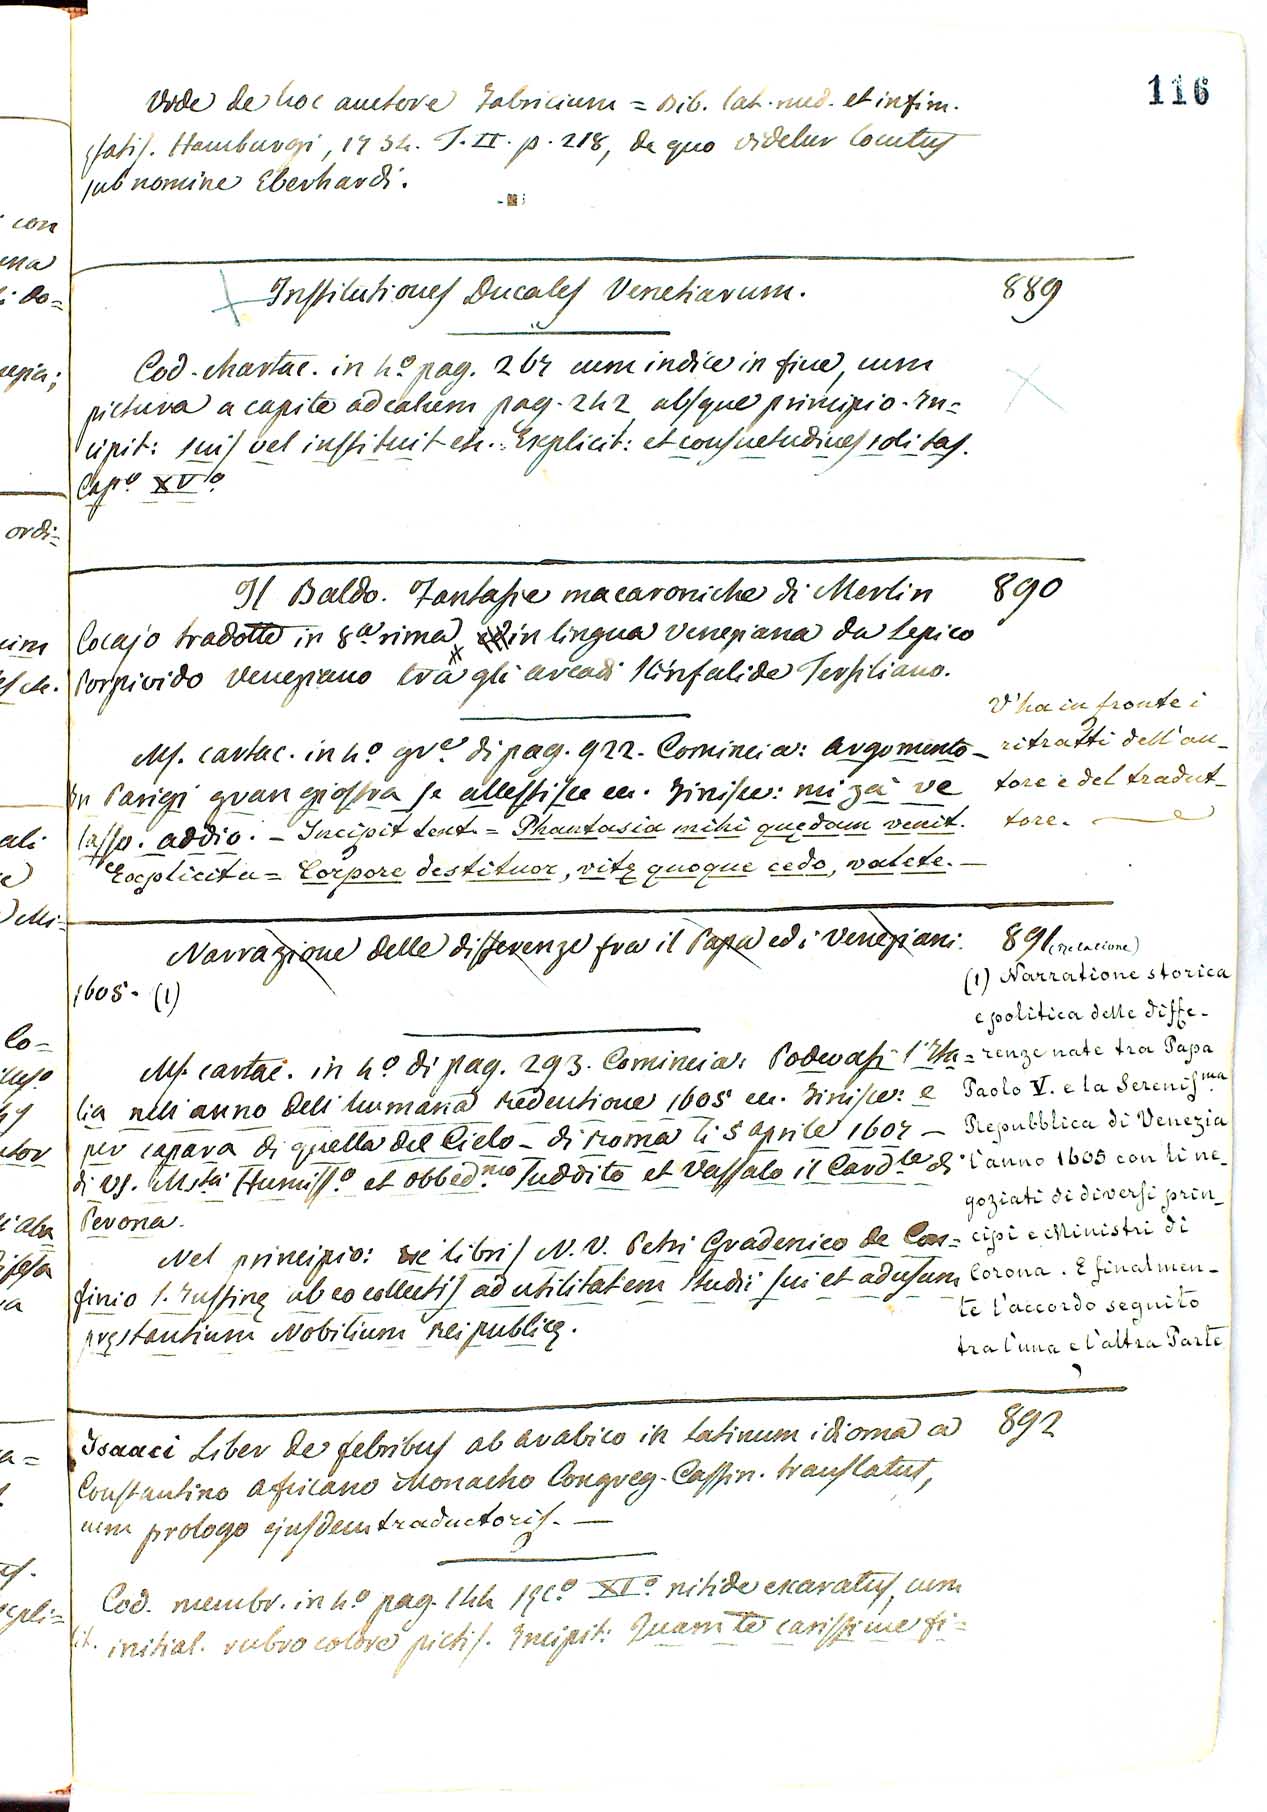 116
Vide de hoc auctore Fabricium = Bib. lat. med. et infim.
ætatis. Hamburgi, 1734. T. II. p. 218, de quo videtur locutus
sub nomine Eberhardi.
Institutiones Ducales Venetiarum. 889
Cod. chartac. in 4º pag. 267 cum indice in fine, cum
pictura a capite ad calcem pag. 242 absque principio. In-
cipit: suis vel instituit etc. Explicit: et consuetudines solitas.
XVº
Il Baldo. Fantasie macaroniche di Merlin 890
Cocajo tradotte in 8ª rima in lingua veneziana da Lepico
Porpirido Veneziano tra gli arcadi Tersiliano.
Ms. cartac. in 4º gr.e di pag. 922. Comincia: Argomento -
In Parigi gran giostra se allestisce ec. Finisce: mi za ve
lasso. addio. - Incipit text. = Phantasia mihi quędam venit.
Explicit = Corpore destituor, vitę quoque cedo, valete. —
V'ha in fronte i
ritratti dell'au-
tore e del tradut-
tore.
Narrazione delle differenze fra il Papa ed i Veneziani. 891
1605. (1)
Ms. cartac. in 4º di pag. 293. Comincia: Podevasi l'Ita=
lia nell'anno dell'humana redentione 1605 ec. Finisce: e
per capara di quella del Cielo - di Roma li 5 aprile 1607 -
di VS. Msta Humissº et obbed.mo suddito et vassalo il Card.le di
Perona.
Nel principio: libris N. V. Petri Gradenico de Con=
finio S. Justinę ab eo collectis ad utilitatem studii sui et ad usum
pręstantium Nobilium Reipublicę.
(relacione)
(1) Narratione storica
e politica delle diffe-
renze nate tra Papa
Paolo V. e la Serenis.ma
Repubblica di Venezia
l'anno 1605 con li ne-
goziati di diversi prin-
cipi e Ministri di
Corona. E finalmen-
te l'accordo seguito
tra l'una e l'altra Parte
Isaaci Liber de febribus ab arabico in latinum idioma a 892
Constantino Africano Monacho Congreg. Cassin. translatus,
cum prologo ejusdem traductoris. —
Cod. membr. in 4º pag. 144 XIº nitide exaratus, cum
initial. rubro colore pictis. Incipit: Quam te carissime fi=